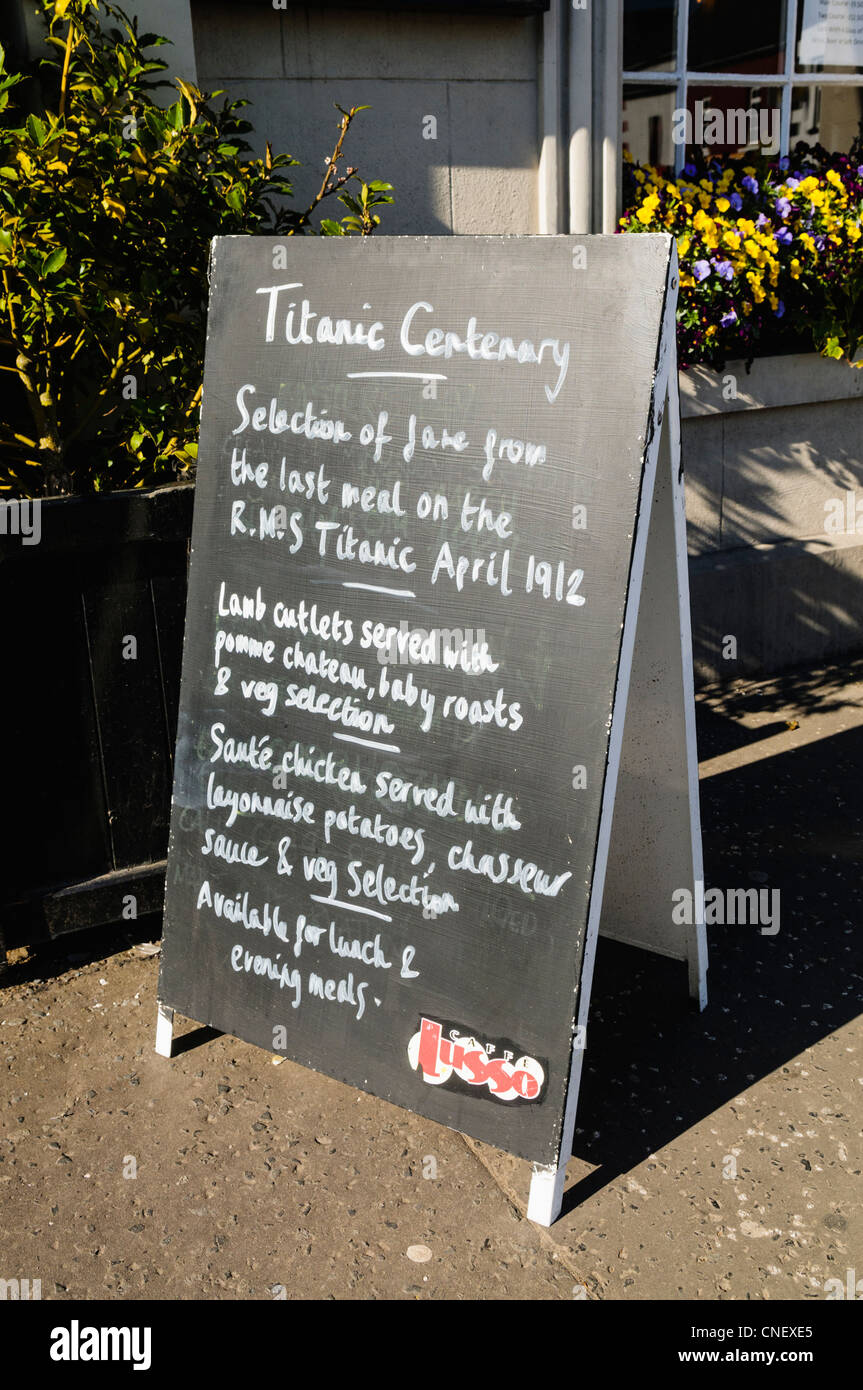 Titanic Centenary
Selection of fare from
the last meal on the
R.M.S Titanic April 1912
Lamb cutlets served with
pomme chateau, baby roasts
& veg selection
Sauté chicken served with
layonnaise potatoes, chasseur
sauce & veg selection
Available for lunch &
evening meals.
CAFFÈ
Lusso
a
alamy
alamy
Image ID: CNEXE5
www.alamy.com